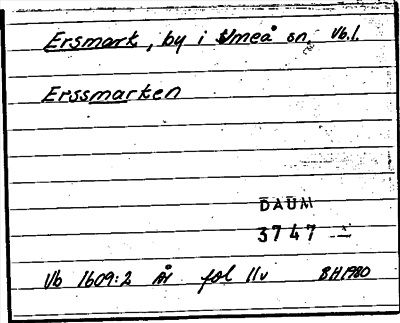 Ersmark, by i Umeå sn, Vb.l.
Erssmarken
DAUM
3747
Vb 1609:2 År fol 11v BH 1980